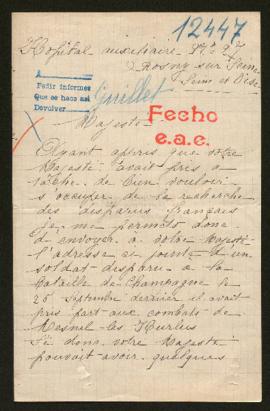 12447
Hopital auxiliaire N° 27
Rosny sur Seine
Seine et Oise
A
Pedir informes
Que se haga así
Devolver
juillet
Fecho
e.a.e.
Majesté
Ayant appris que votre
Majesté avait pris a
tâche de bien vouloir
s'occuper de la recherche
des disparus français
je me permets donc
de envoyer a votre Majesté
l'adresse ci jointe d'un
soldat disparu a la
bataille de Champagne le
25 Septembre dernier il avait
pris part aux combats de
Mesnil-les Hurlus
Si donc votre Majesté
pouvait avoir quelques